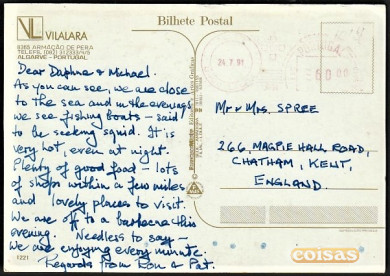 Bilhete Postal
VL VILALARA
8365 ARMAÇÃO DE PERA
TELEFS. (082) 312333/4/5
ALGARVE - PORTUGAL
24. 7. 91
PORTUGAL
60.00
Dear Daphne & Michael.
As you can see, we are close
to the sea and in the evenings
we see fishing boats - said
to be seeking squid. It is
very hot, even at night.
Plenty of good food - lots
of shops within a few miles
and lovely places to visit.
We are off to a barbecue this
evening. Needless to say -
we are enjoying every minute.
Regards from Ron & Pat.
Mr & Mrs. SPREE
266, MAGPIE HALL ROAD,
CHATHAM, KENT,
ENGLAND.
1221
coisas